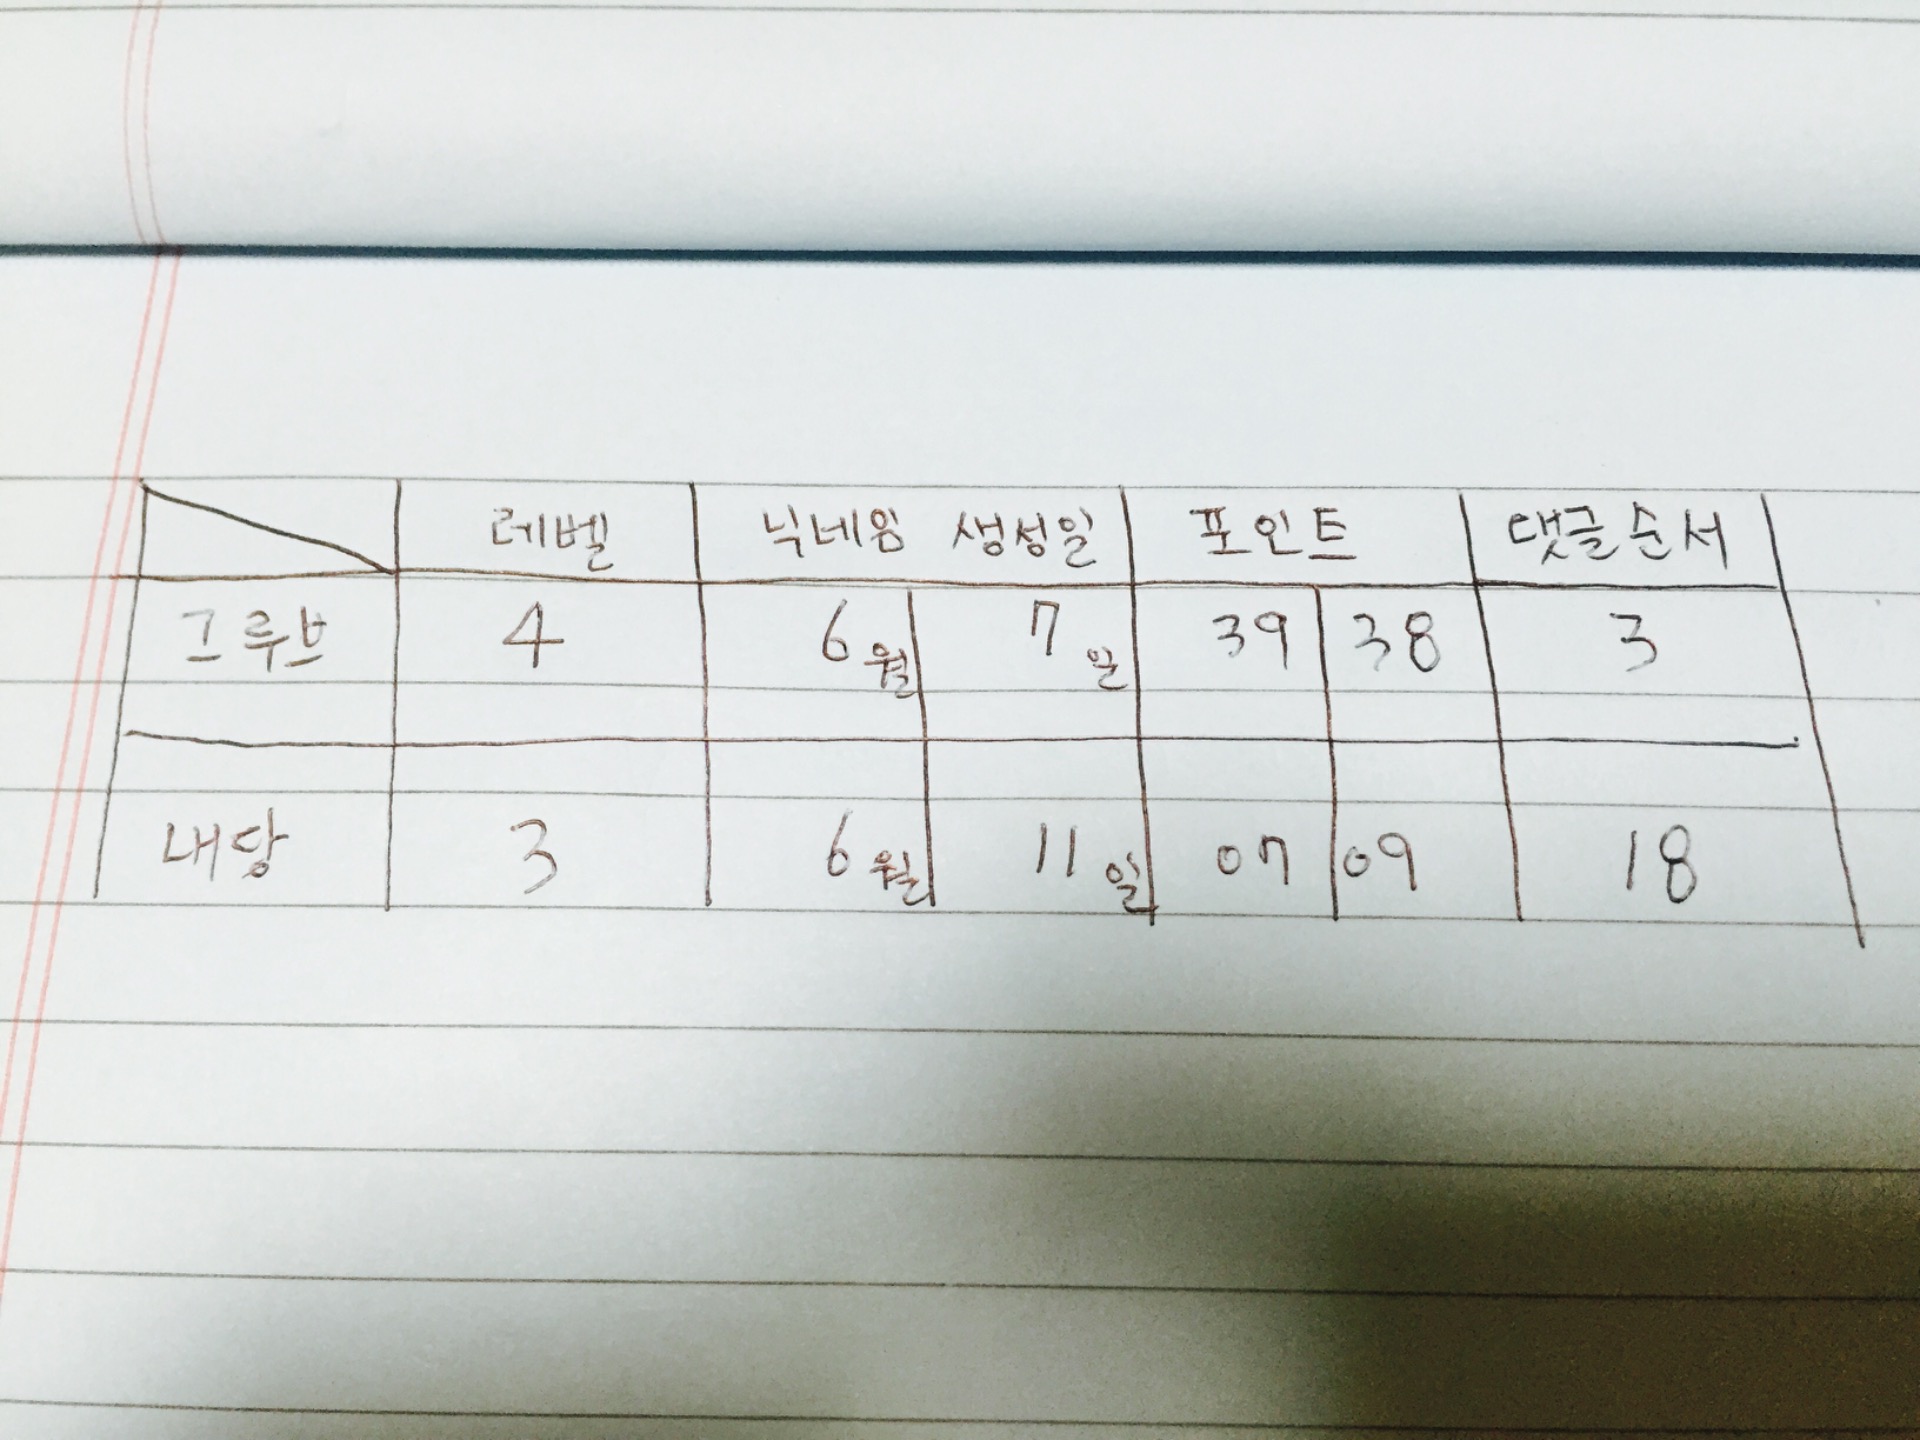 레벨 닉네임 생성일 포인트 댓글순서
그루브 4 6월 7일 39 38 3
내당 3 6월 11일 07 09 18